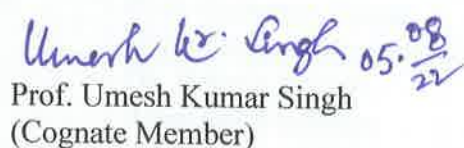 Umesh Kr. Singh 05.08/22
Prof. Umesh Kumar Singh
(Cognate Member)